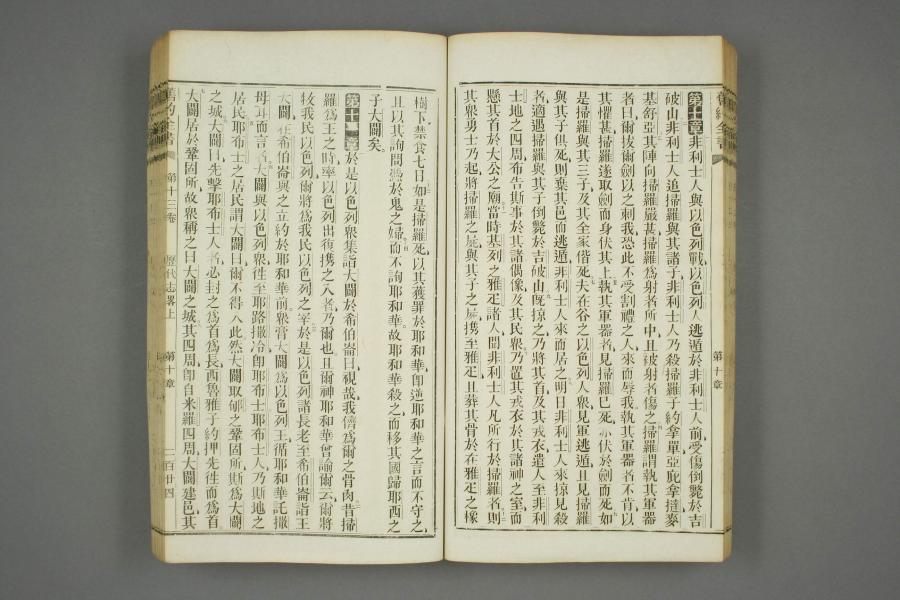 第十章非利士人與以色列戰以色列人逃遁於非利士人前受傷倒斃於吉
破山非利士人追掃羅與其諸子非利士人乃殺掃羅子約拿單亞庇拿撻麥
基舒亞其陣向掃羅嚴甚掃羅為射者所中且被射者傷之掃羅謂執其軍器
者曰爾拔爾劍以之刺我恐此不受割禮之人來而辱我執其軍器者不肯以
其懼甚掃羅遂取劍而身伏其上執其軍器者見掃羅已死亦伏於劍而死如
是掃羅與其三子及其全家偕死夫在谷之以色列人眾見軍逃遁且見掃羅
與其子俱死則棄其邑而逃遁非利士人來而居之明日非利士人來掠見殺
者適遇掃羅與其子倒斃於吉破山既掠之乃將其首及其戎衣遣人至非利
士地之四周布告斯事於其諸偶像及其民眾乃置其戎衣於其諸神之室而
懸其首於大公之廟當時基列之雅疋諸人聞非利士人凡所行於掃羅者則
其眾勇士乃起將掃羅之屍與其子之屍携至雅疋且葬其骨於在雅疋之橡
舊約全書
第十章
樹下禁食七日如是掃羅死以其獲罪於耶和華卽逆耶和華之言而不守之
且以其詢問憑於鬼之婦而不詢耶和華故耶和華殺之而移其國歸耶西之
子大闢矣
第十一章於是以色列眾集詣大闢於希伯崙曰視哉我儕為爾之骨肉昔掃
羅為王之時率以色列出復携之入者乃爾也且爾神耶和華曾諭爾云爾將
牧我民以色列爾將為我民以色列之宰於是以色列諸長老至希伯崙詣王
大闢在希伯崙與之立約於耶和華前眾膏大闢為以色列王循耶和華託撒
母耳而言者大闢與以色列眾徃至耶路撒冷卽耶布士耶布士人乃斯地之
居民耶布士之居民謂大闢曰爾不得入此然大闢取郇之鞏固所斯為大闢
之城大闢曰先擊耶布士人者必封之為首為長西魯雅子約押先徃而為首
大闢居於鞏固所故眾稱之曰大闢之城其四周卽自米羅四周大闢建邑其
舊約全書
第十三卷
歷代志畧上
第十章
一百廿四